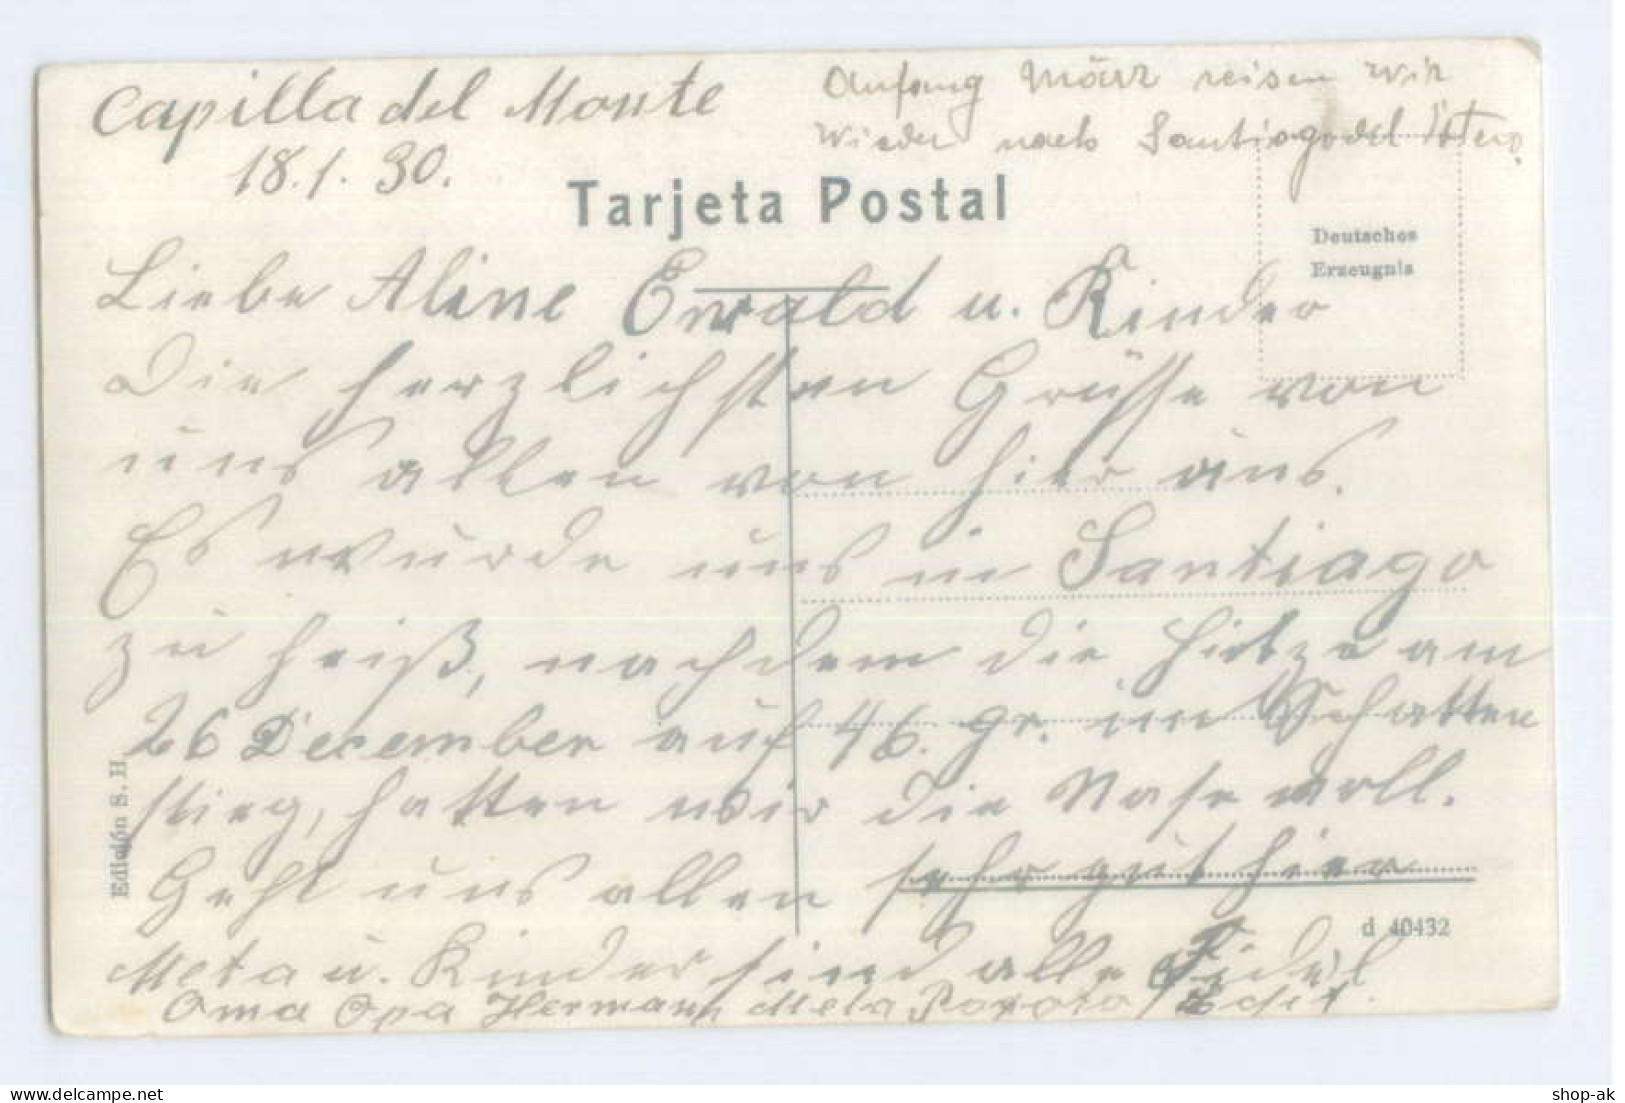 Capilla del Monte
18.1.30.
Anfang März reisen wir
wieder nach Santiago del Estero.
Tarjeta Postal
Deutsches
Erzeugnis
Liebe Aline Ewald u. Kinder
Die herzlichsten Grüsse von
uns allen von hier aus.
Es wurde uns in Santiago
zu heiß, nachdem die Hitze am
26 Dezember auf 46. gr. im Schatten
stieg, hatten wir die Nase voll.
Geht uns allen sehr gut hier
Meta u. Kinder sind alle Fidel
Oma Opa Hermann Meta
Edición S. H.
d 40432
shop-ak